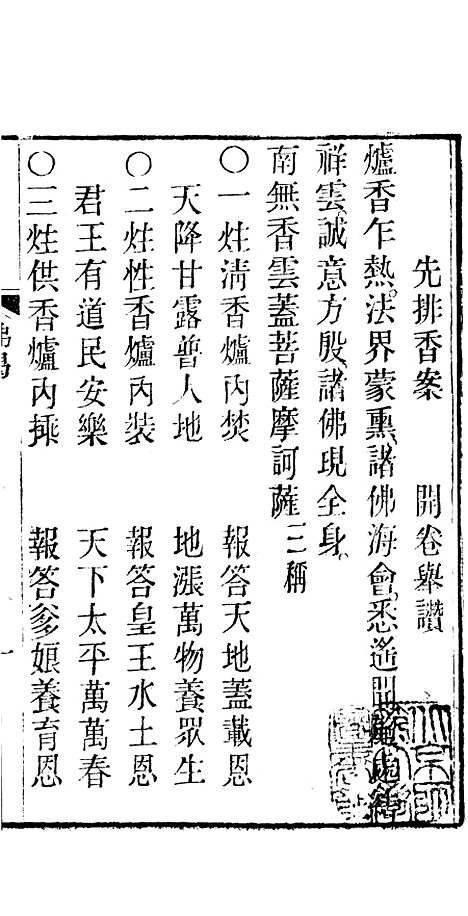 先排香案　開卷舉讚
爐香乍熱。法界蒙熏。諸佛海會。悉遙聞。隨處結
祥雲。誠意方殷。諸佛現全身。
南無香雲蓋菩薩摩訶薩 三稱
○一炷清香爐內焚　報答天地蓋載恩
天降甘露普人地　地漲萬物養眾生
○二炷性香爐丙裝　報答皇王水土恩
君王有道民安樂　天下太平萬萬春
○三炷供香爐丙揷　報答爹娘養育恩
佛偈
一